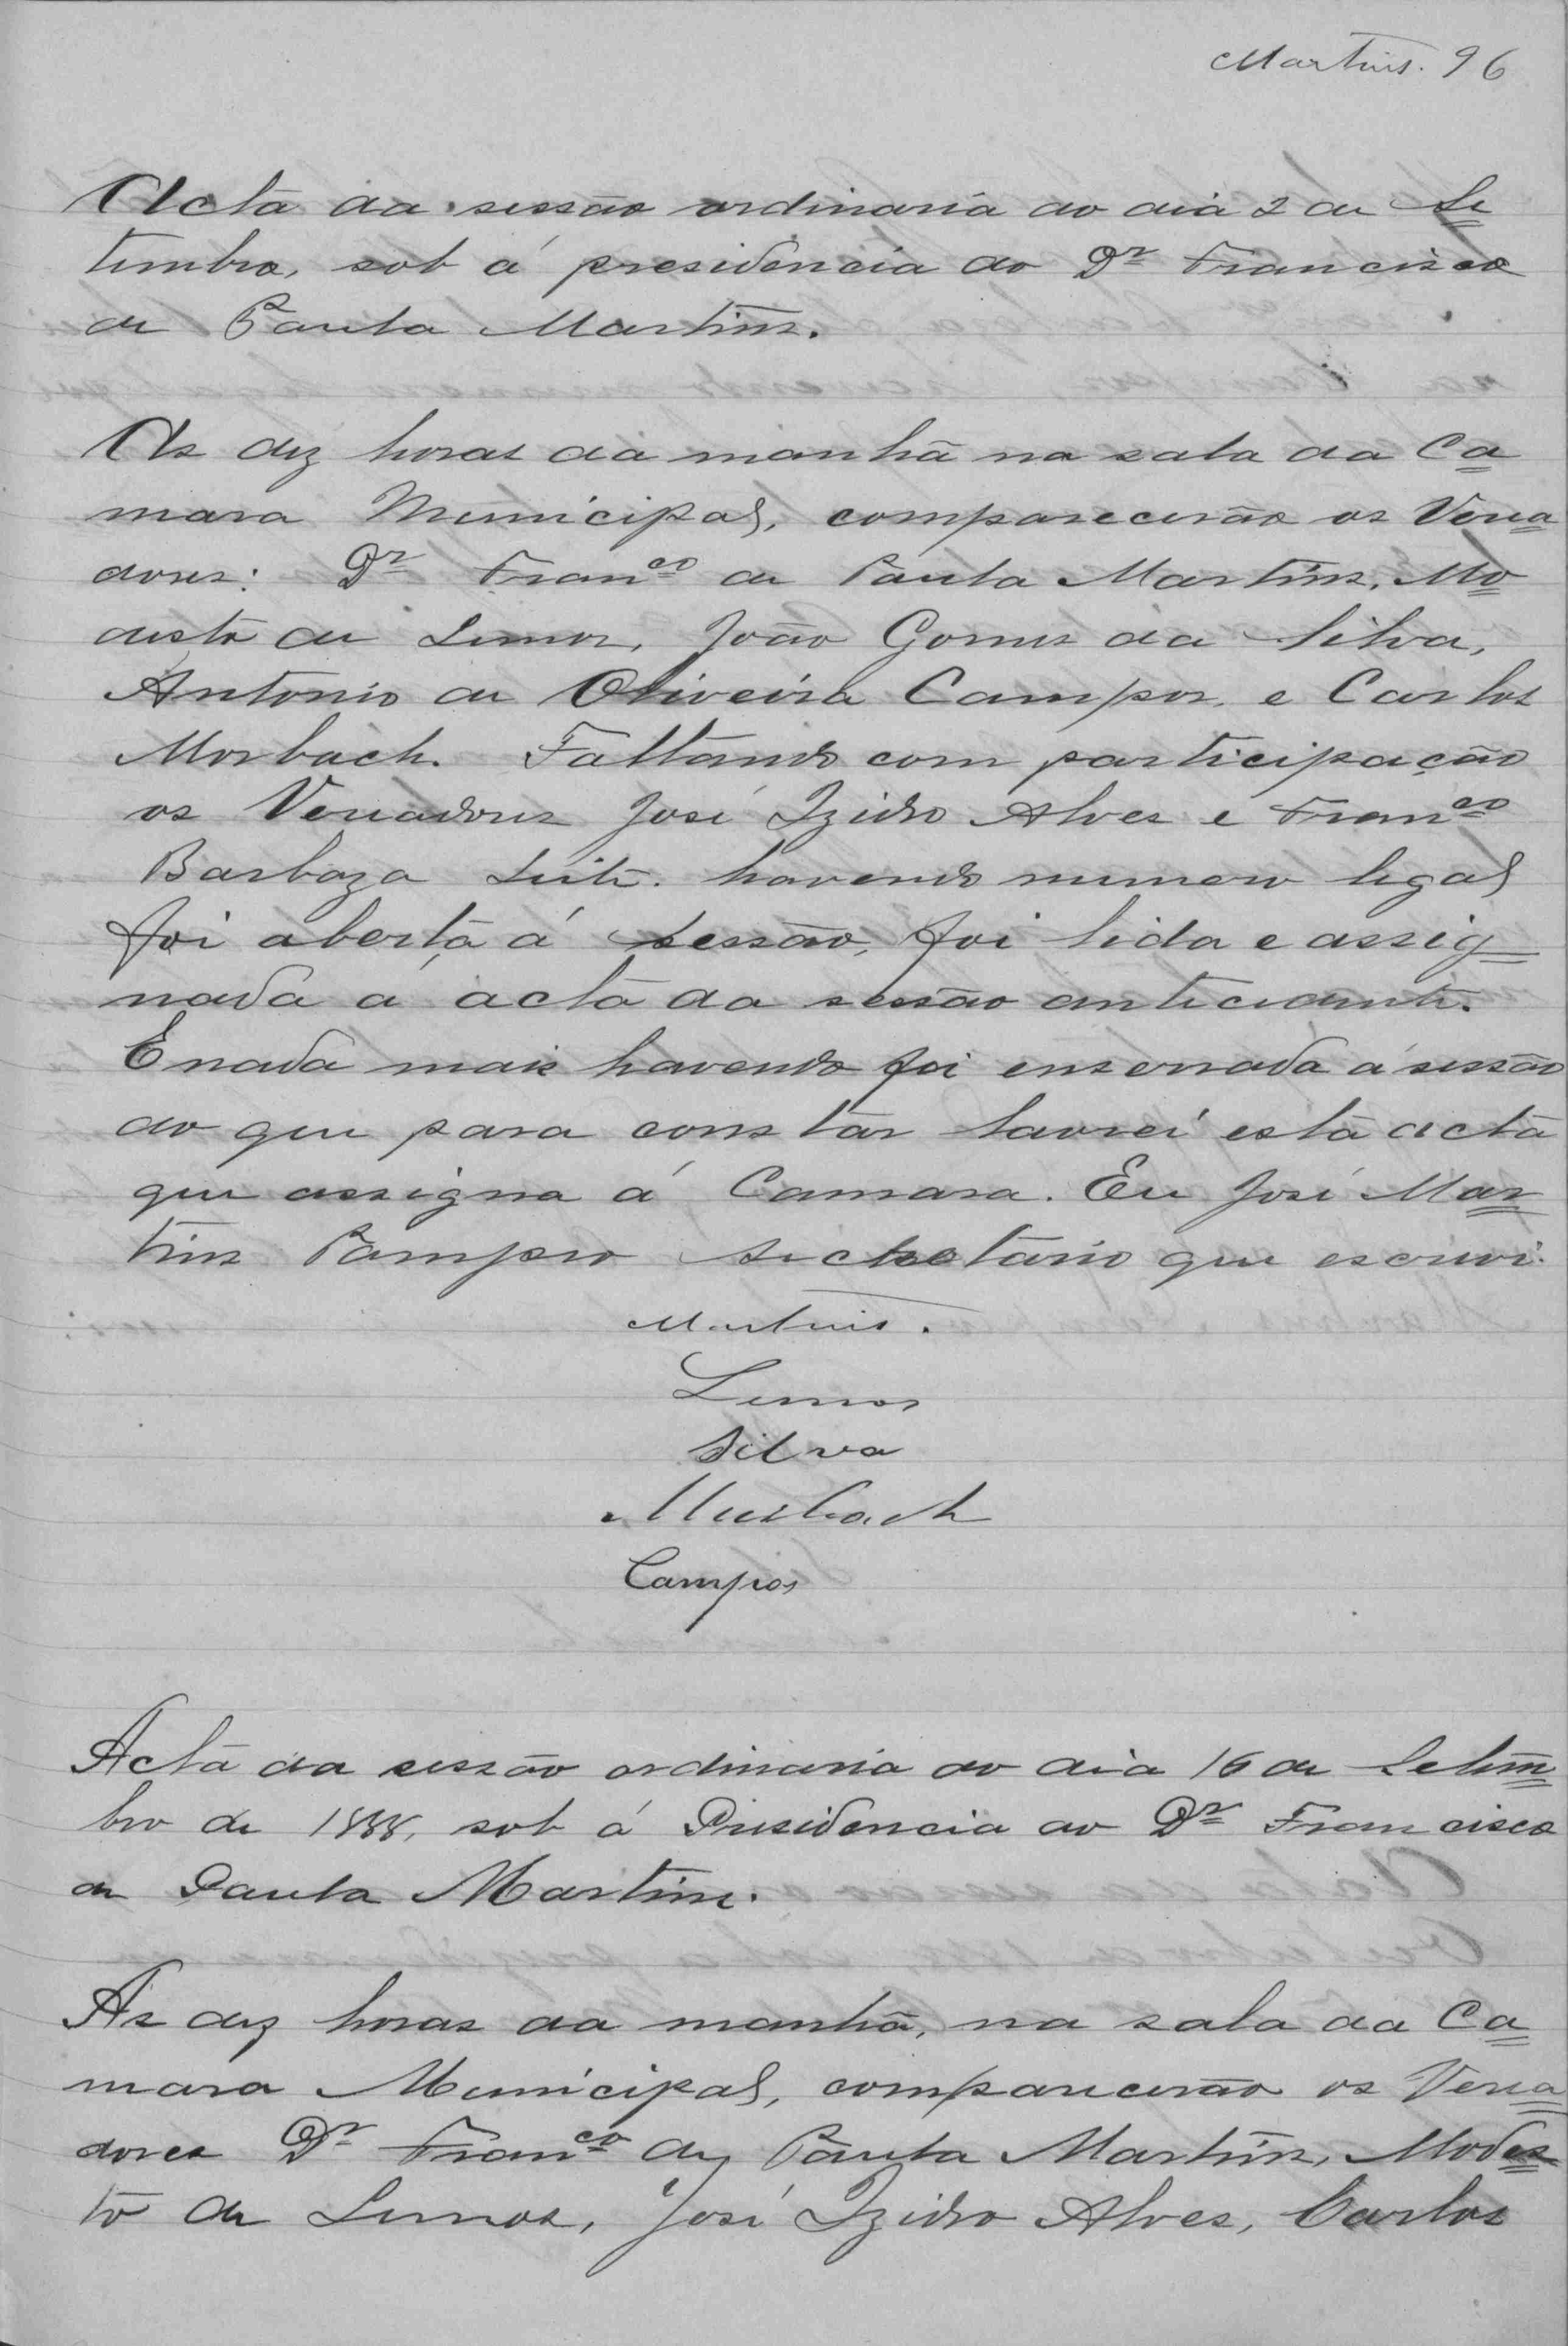 Martins. 96
Acta da sessão ordinaria do dia 2 de Se
tembro, sob á presidencia do Dr Francisco
de Paula Martins.
As dez horas da manhã na sala da Ca
mara Municipal, comparecerão os Verea
dores: Dr Franco de Paula Martins, Mo
desto de Lemos, João Gomes da Silva,
Antonio de Oliveira Campos, e Carlos
Morbach. Faltando com participação
os Vereadores José Izidro Alves e Franco
Barboza Leite. havendo numero legal
foi aberta á sessão, foi lida e assig
nada a acta da sessão antecedente.
E nada mais havendo foi enserrada á sessão
do que para constar lavrei esta acta
que assigna á Camara. Eu José Mar
tins Pampro secretario que escrevi.
Martins.
Lemos
Silva
Murbach
Campos
Acta da sessão ordinaria do dia 16 de Setem
bro de 1888, sob á Presidencia do Dr Francisco
de Paula Martins.
As dez horas da manhã, na sala da Ca
mara Municipal, comparecerão os Verea
dores Dr Franco de Paula Martins, Modes
to de Lemos, José Izidro Alves, Carlos